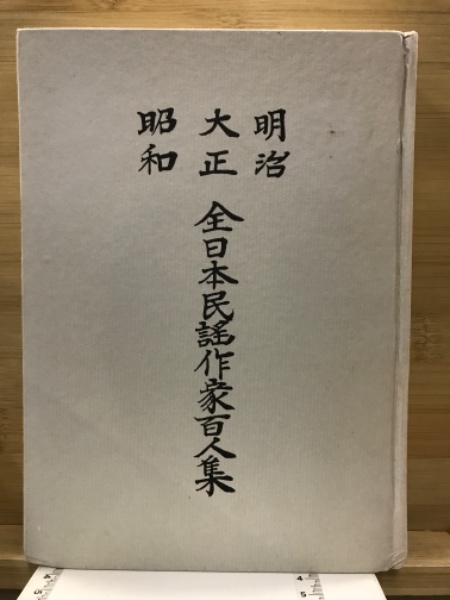 明治
大正 全日本民謡作家百人集
昭和
4
5